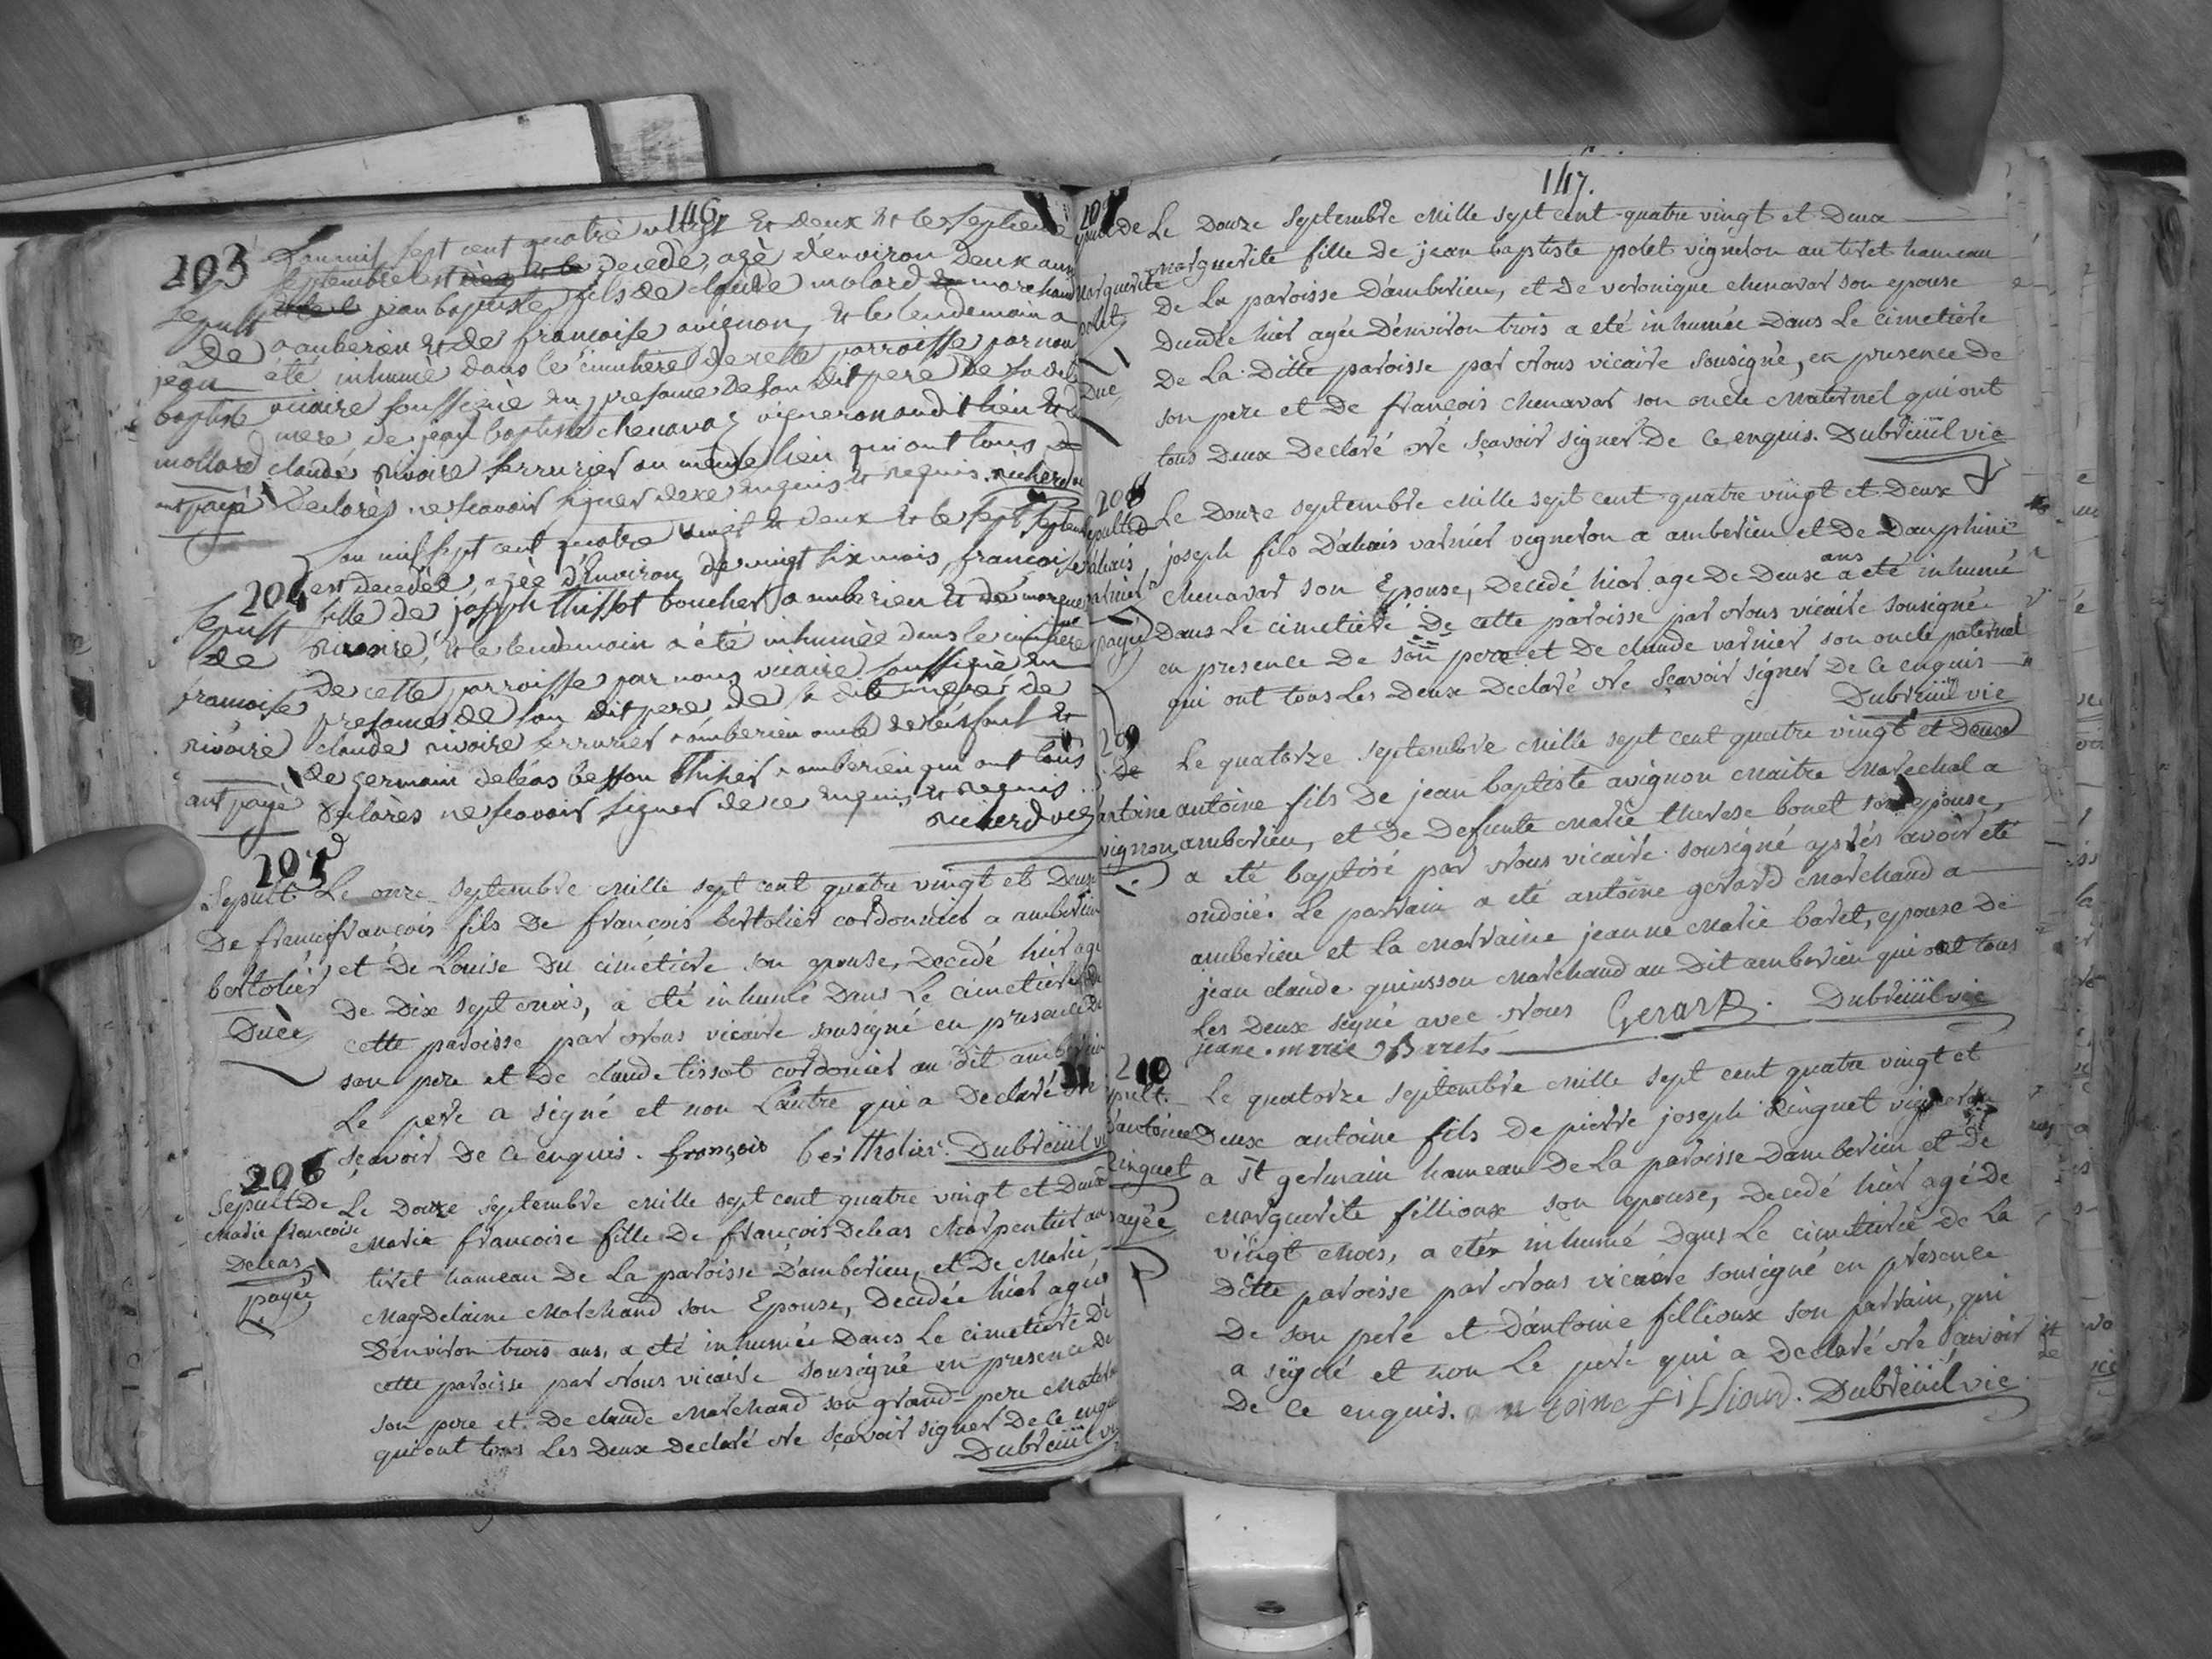 146
203
L'an mil sept cent quatre vingt & deux & le septieme
septembre est decedé, agé d'environ deux ans
jean baptiste fils de claude molard marchand
a amberieu & de francoise avignon, & le lendemain a
été inhumé dans le cimitiere de cette parroisse par nous
vicaire soussigné en presence de son dit pere de sa dite
mere de jean baptiste chenavaz vigneron au dit lieu &
claude rivoire serrurier au même lieu qui ont tous
declarés ne scavoir signer de ce enquis & requis. richerd
Sepult
De
jean
baptiste
mollard
ont payé
204
L'an mil sept cent quatre vingt & deux & le sept septembre
est decedée, agée d'environ de vingt six mois, francoise
fille de joseph thissot boucher a amberieu & de
rivoire, & le lendemain a été inhumée dans le cimitiere
de cette parroisse par nous vicaire soussigné en
presence de son dit pere de sa dite mere de
claude rivoire serrurier a amberieu oncle de l'enfant &
de germain deléas besson thisier a amberieu qui ont tous
declarés ne scavoir signer de ce enquis & requis
richerd vic
Sepult
de
francoise
rivoire
ont payé
205
Le onze septembre mille sept cent quatre vingt et Deux
françois fils De françois bertolier cordonnier a amberieu
et De Louise Du cimetiere son epouse, Decedé hier agé
De Dix sept mois, a eté inhumé Dans Le cimetiere De
cette paroisse par Nous vicaire sousigné en presence De
son pere et De claude tissot cordonier au dit amberieu
Le pere a signé et non L'autre qui a Declaré Ne
sçavoir De ce enquis. françois bertholier. Dubreüil vic
Sepult
De françois
bertolier
Duée
206
Le Douze septembre mille sept cent quatre vingt et Deux
Marie francoise fille De françois Deleas charpentier au
tiret hameau De La paroisse D'amberieu, et De Marie
MagDelaine Marchand son Epouse, Decedée hier agée
D'environ trois ans, a eté inhumée Dans Le cimetiere De
cette paroisse par Nous vicaire sousigné en presence De
son pere et De claude Marchand son grand-pere Maternel
qui ont tous Les Deux Declaré Ne sçavoir signer De ce enquis
Dubreüil vic
Sepult De
Marie francoise
Deleas
payée
147.
207
Le Douze septembre Mille sept cent quatre vingt et Deux
marguerite fille De jean baptiste polet vigneron au tiret hameau
De La paroisse D'amberieu, et De veronique chenavar son epouse
Decedée hier agée D'environ trois a eté inhumée Dans Le cimetiere
De La Ditte paroisse par Nous vicaire sousigné, en presence De
son pere et De françois chenavar son oncle Maternel qui ont
tous Deux Declaré Ne sçavoir signer De ce enquis. Dubreüil vic
marguerite
polet
Due
208
Le Douze septembre Mille sept cent quatre vingt et Deux
joseph fils D'alxais varnier vigneron a amberieu et De Dauphine
chenavar son Epouse, Decedé hier agé De Deux ans a eté inhumé
Dans Le cimetiere De cette paroisse par Nous vicaire sousigné
en presence De son pere et De claude varnier son oncle paternel
qui ont tous Les Deux Declaré Ne sçavoir signer De ce enquis
Dubreüil vic
payée
209
Le quatorze septembre Mille sept cent quatre vingt et Deux
antoine fils De jean baptiste avignon Maitre Marechal a
amberieu, et De Defunte Marie therese bonet son epouse,
a eté baptisé par Nous vicaire sousigné après avoir eté
ondoié. Le parrain a eté antoine gerard Marchand a
amberieu et La Marraine jeanne Marie baret, epouse De
jean claude guinsson Marchand au Dit amberieu qui ont tous
Les Deux signé avec Nous Gerard. Dubreüil vic
jeane marie Baret
De
antoine
avignon
210
Le quatorze septembre Mille sept cent quatre vingt et
Deux antoine fils De pierre joseph Ringuet vigneron
a St germain hameau De La paroisse D'amberieu et De
Marguerite fillioux son epouse, Decedé hier agé De
vingt Mois, a eté inhumé Dans Le cimetiere De La
Ditte paroisse par Nous vicaire sousigné en presence
De son pere et D'antoine fillioux son parrain, qui
a signé et non Le pere qui a Declaré Ne sçavoir
De ce enquis. antoine filliond. Dubreüil vic
D'antoine
Ringuet
payée